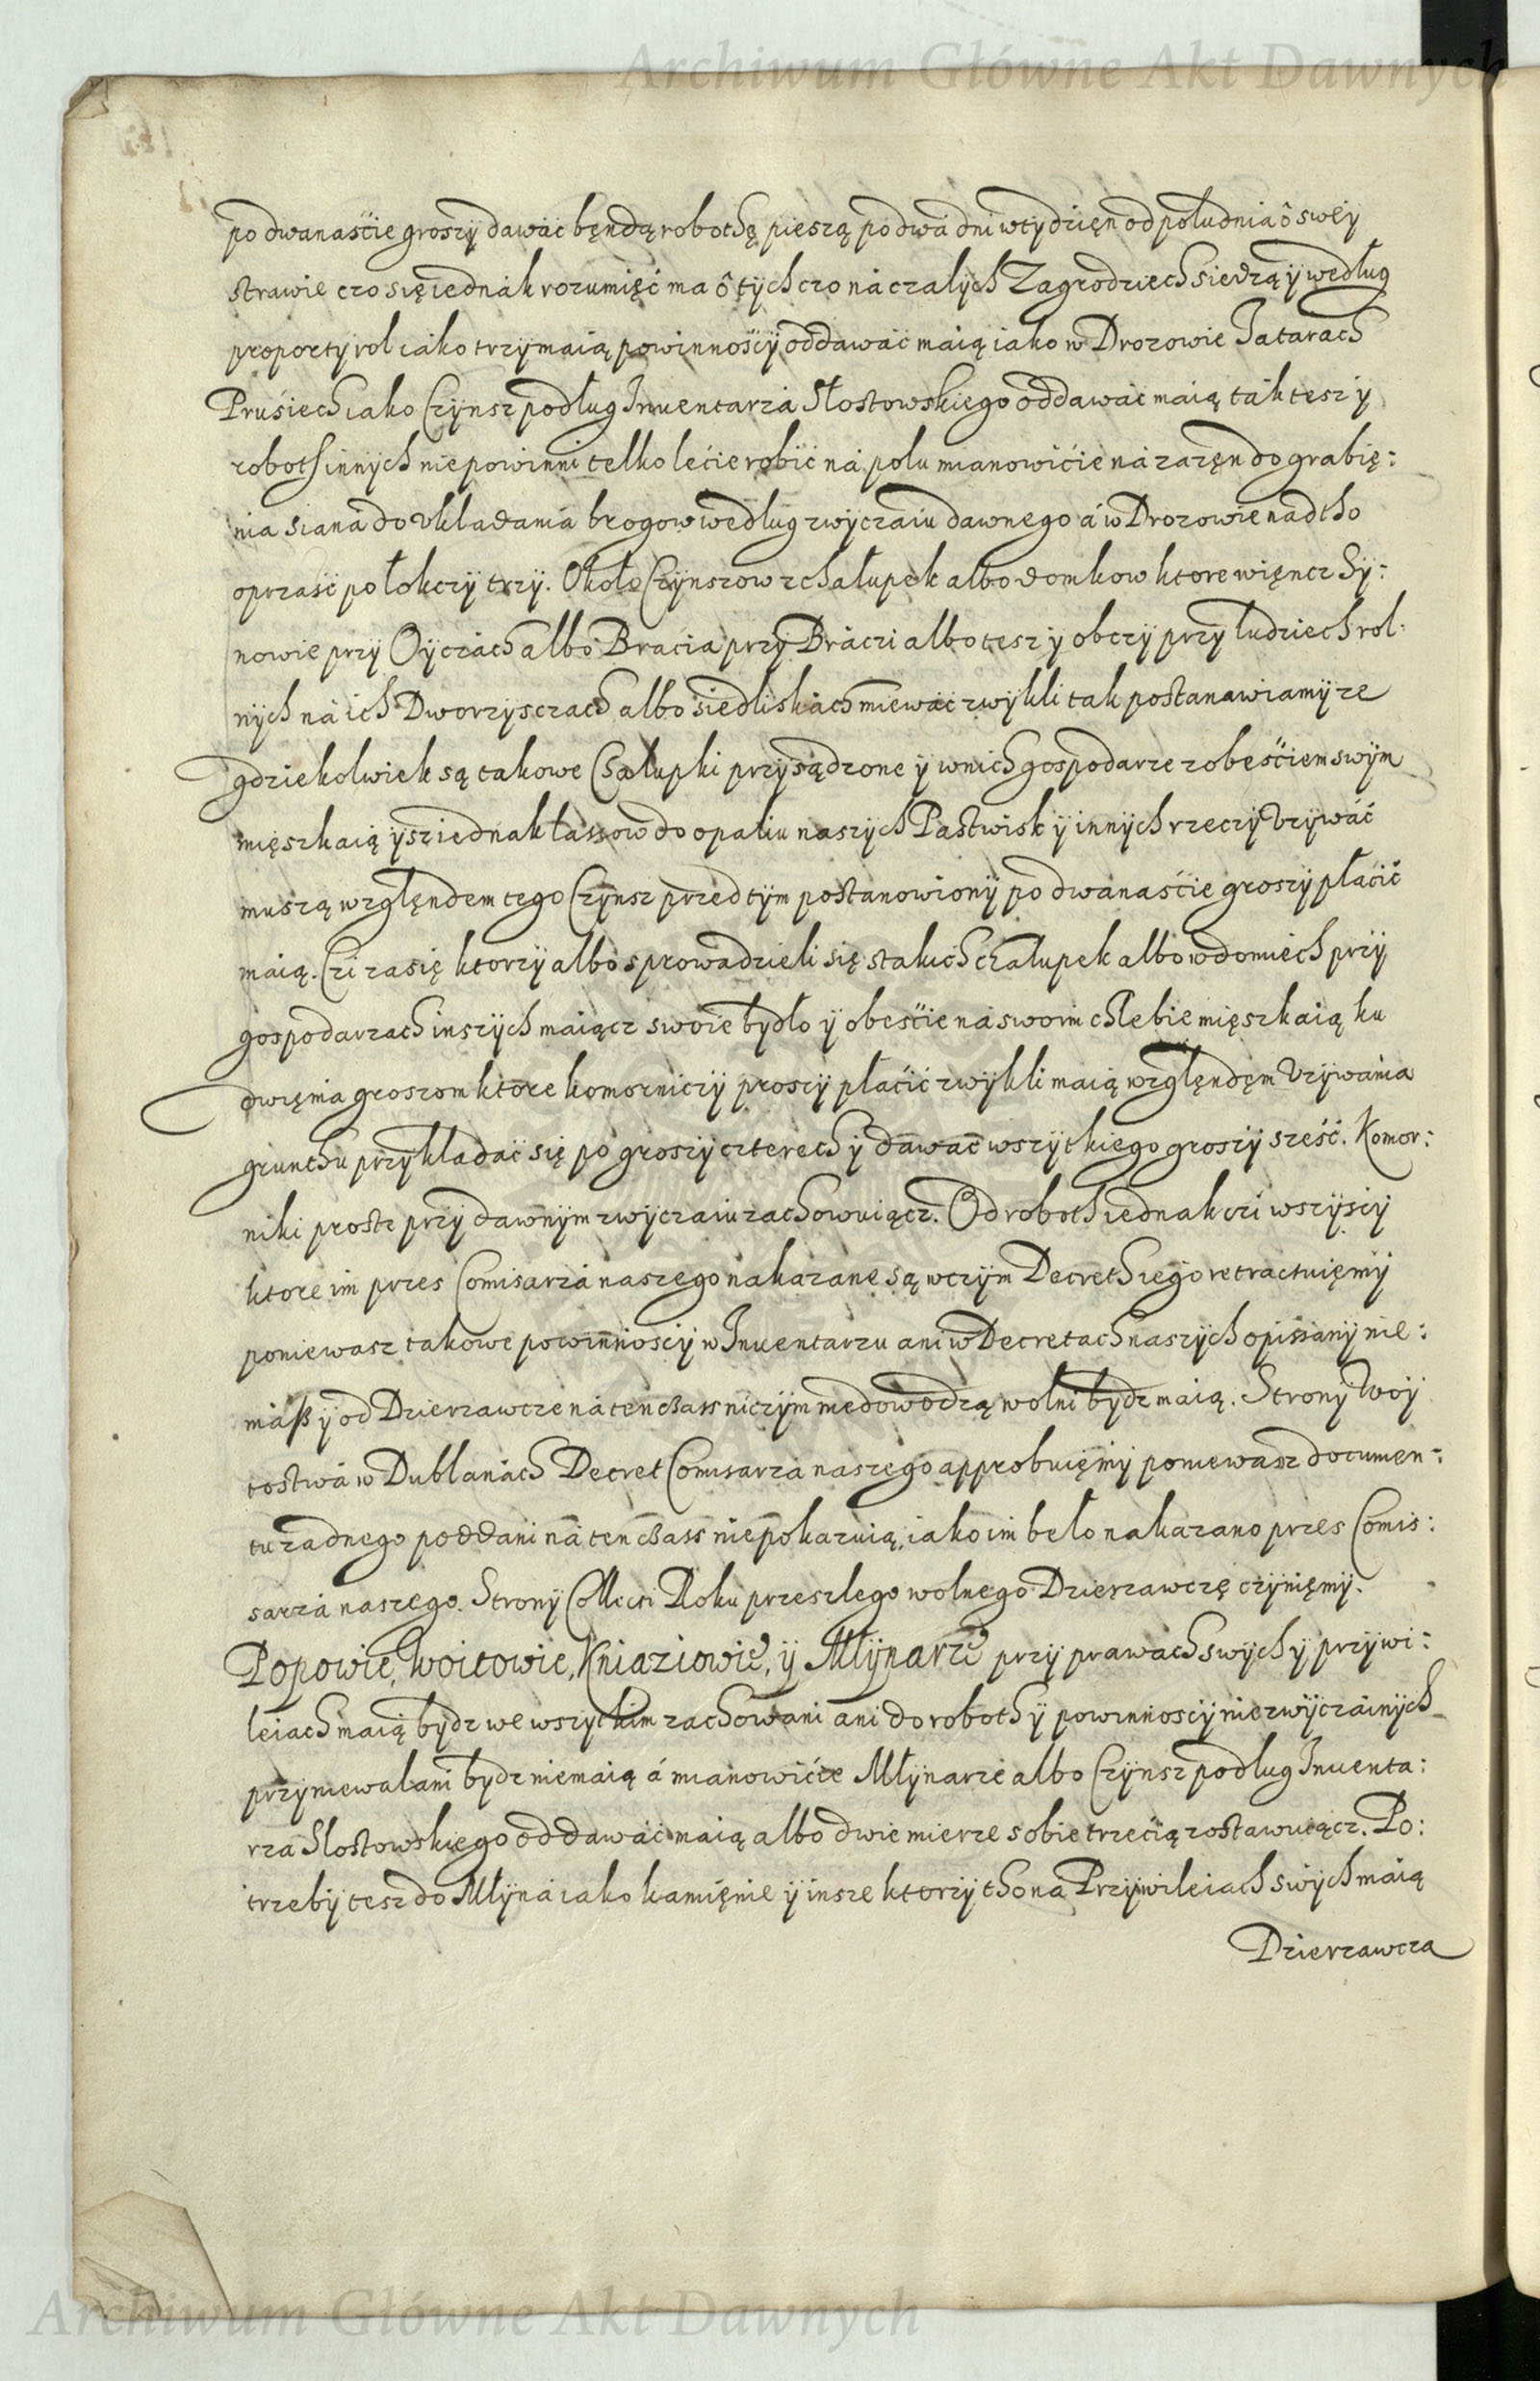 Archiwum Główne Akt Dawnych
po dwanaście groszy dawać będą robothę pieszą po dwa dni w tydzięn od południa o swey
strawie czo się iednak rozumięć ma o tych czo na czałych Zagrodziech siedzą y według
proporty rol iako trzymaią powinnosci oddawać maią iako w Drozowie Tatarach
Prusiech iako Czynsz podług Inuentarza Słostowskiego oddawać maią tak tesz y
roboth innych nie powinni telko lećie robić na polu mianowićie na zazęn do grabię:
nia siana do vkładania brogow według zwyczaiu dawnego a w Drozowie nadtho
oprząść po łokczy trzy. Około Czynszow z chałupek albo domkow ktore więncz Sy:
nowie przy Oyczach albo Braćia przy Braczi albo tesz y obczy przy ludziech rol:
nych na ich Dworzysczach albo siedliskach miewać zwykli tak postanawiamy ze
gdziekolwiek są takowe Chałupki przysądzone y w nich gospodarze z obeśćiem swym
mięszkaią ysz iednak lassow do opału naszych Pastwisk y innych rzeczy vzywać
muszą względem tego Czynsz przedtym postanowiony po dwanaśćie groszy płaćić
maią. Czi zasię ktorzy albo sprowadzieli się s takich chałupek albo w domiech przy
gospodarzach inszych maiącz swoie bydło y obeśćie na swoim chlebie mięszkaią ku
dwięma groszom ktore komorniczy prosczy płaćić zwykli maią względęm vzywania
grunthu przykładać się po groszy czterech y dawać wszytkiego groszy sześć. Komor:
niki proste przy dawnym zwyczaiu zachowuiącz. Od roboth iednak czi wszysczy
ktore im przes Comisarza naszego nakazane są w czym Decreth iego retractuięmy
poniewasz takowe powinnosci w Inuentarzu ani w Decretach naszych opissany nie:
masz y od Dzierzawcze na ten czass niczym nie dowodzą wolni bydz maią. Strony Woy
tostwa w Dublanach Decret Comisarza naszego approbuięmy poniewasz documen:
tu zadnego poddani na ten czass nie pokazuią, iako im beło nakazano przes Comis:
sarza naszego. Strony Collecti Roku przeszłego wolnego Dzierzawczę czynięmy.
Popowie, Woitowie, Kniaziowie, y Młynarze przy prawach swych y przywi:
leiach maią bydz we wszytkim zachowani ani do roboth y powinnosci niezwyczainych
przyniewalani bydz nie maią a mianowićie Młynarze albo Czynsz podług Inuenta:
rza Slostowskiego oddawać maią albo dwie mierze sobie trzećią zostawuiącz. Po:
trzeby tesz do Młyna iako kamięnie y insze ktorzy tho na Przywileiach swych maią
Dzierzawcza
Archiwum Główne Akt Dawnych